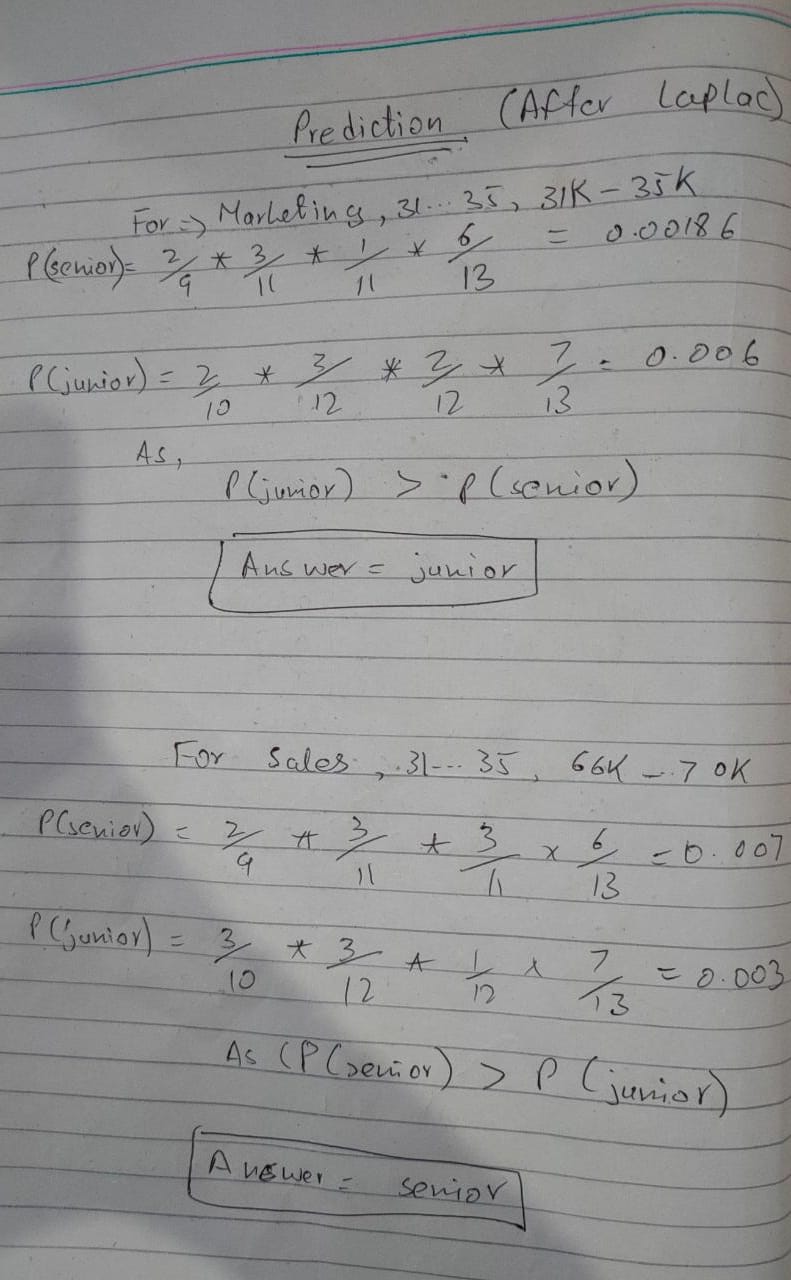 Prediction (After Laplac)
For => Marketing, 31...35, 31K - 35K
P(senior) = 2/9 * 3/11 * 1/11 * 6/13 = 0.00186
P(junior) = 2/10 * 3/12 * 2/12 * 7/13 = 0.006
As,
P(junior) > P(senior)
Answer = junior
For Sales, 31---35, 66K - 70K
P(senior) = 2/9 * 3/11 * 3/11 x 6/13 = 0.007
P(junior) = 3/10 * 3/12 * 1/12 x 7/13 = 0.003
As (P(senior) > P(junior)
Answer = senior